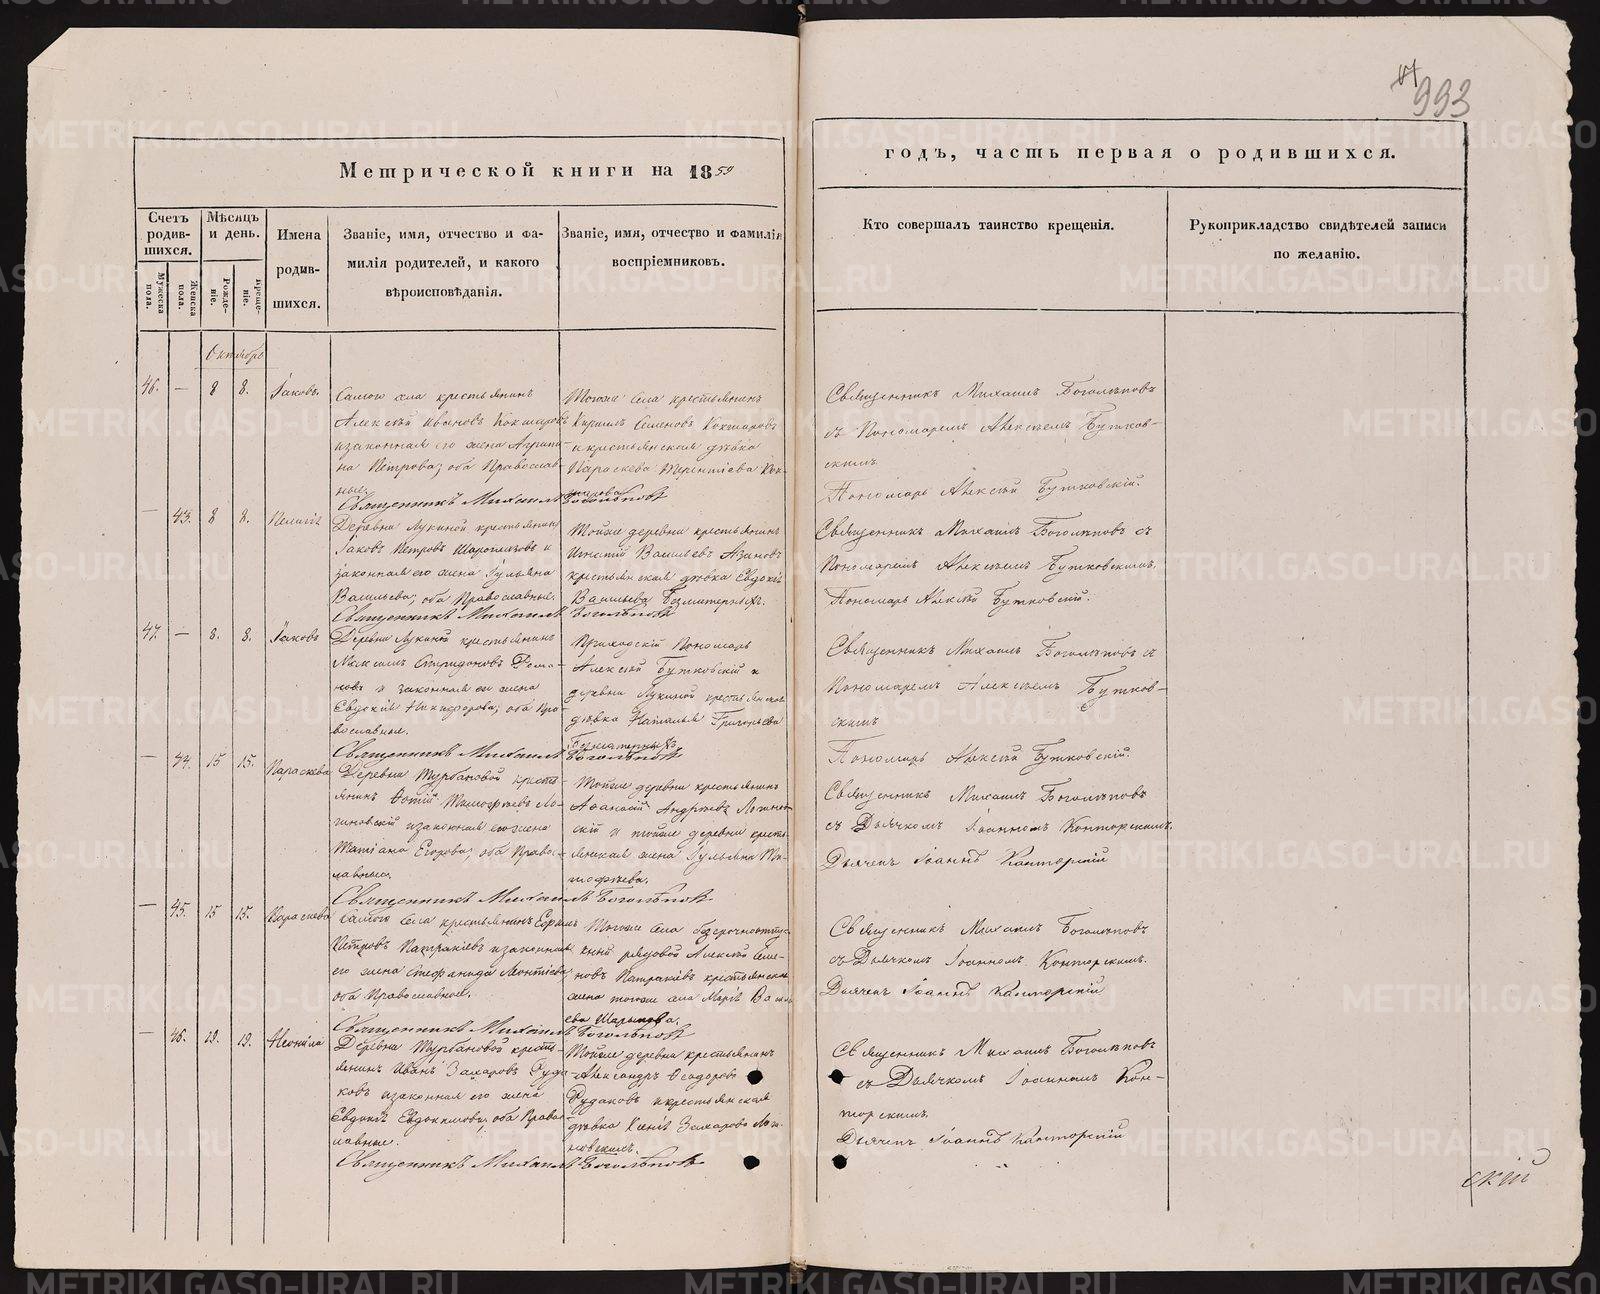 993
Метрической книги на 1859
годъ, часть первая о родившихся.
Счетъ родив-шихся.
Мѣсяцъ и день.
Имена родив-шихся.
Званіе, имя, отчество и фа-
милія родителей, и какого
вѣроисповѣданія.
Званіе, имя, отчество и фамилія
воспріемниковъ.
Кто совершалъ таинство крещенія.
Рукоприкладство свидѣтелей записи
по желанію.
Мужеска пола.
Женска пола.
Рожде-ніе.
Креще-ніе.
Октябрь
46. — 8 8. Іаковъ.
Самого села крестьянинъ
Алексѣй Ивановъ Кокшаровъ
и законная его жена Агрипи-
на Петрова; оба Православ-
ные.
Священникъ Михаилъ Боголѣповъ
Тогоже села крестьянинъ
Кирилъ Семеновъ Кокшаровъ
и крестьянская дѣвка
Параскева Терентіева Кок-
шарова
Священникъ Михаилъ Боголѣповъ
съ Пономаремъ Алексѣемъ Бутков-
скимъ
Пономарь Алексѣй Бутковскій.
— 43. 8 8. Пелагія
Деревни Лукиной крестьянинъ
Іаковъ Петровъ и
законная его жена Іульяна
Васильева; оба Православные.
Священникъ Михаилъ Боголѣповъ
Тойже деревни крестьянинъ
Игнатій Васильевъ Азановъ
крестьянская дѣвка Евдокія
Васильева
Священникъ Михаилъ Боголѣповъ съ
Пономаремъ Алексѣемъ Бутковскимъ.
Пономарь Алексѣй Бутковскій.
47. — 8. 8. Іаковъ
Деревни Лукиной крестьянинъ
Максимъ Спиридоновъ Рома-
новъ и законная его жена
Евдокія Никифорова; оба Пра-
вославные.
Священникъ Михаилъ Боголѣповъ
Приходскій Пономарь
Алексѣй Бутковскій и
деревни Лукиной крестьянская
дѣвка Наталья Григорьева
Священникъ Михаилъ Боголѣповъ съ
Пономаремъ Алексѣемъ Бутков-
скимъ
Пономарь Алексѣй Бутковскій.
— 44. 15 15. Параскева
Деревни Турбановой кресть-
янинъ Фотій Тимофѣевъ Ло-
гиновскій и законная его жена
Татіана Егорова; оба Правос-
лавные.
Священникъ Михаилъ Боголѣповъ
Тойже деревни крестьянинъ
Афанасій Андреевъ Логинов-
скій и тойже деревни кресть-
янская жена Іульяна Ти-
мофѣева.
Священникъ Михаилъ Боголѣповъ
съ Дьячкомъ Іоанномъ Конторскимъ.
Дьячекъ Іоаннъ Конторскій
— 45. 15 15. Параскева
Самого села крестьянинъ
Петровъ Патракѣевъ и законная
его жена Стефанида Леонтіева;
оба Православные.
Священникъ Михаилъ Боголѣповъ
Тогоже села безсрочноотпус-
кный рядовой Алексѣй Семе-
новъ Патракѣевъ крестьянская
жена тогоже села Марія Василь-
ева
Священникъ Михаилъ Боголѣповъ
съ Дьячкомъ Іоанномъ Конторскимъ.
Дьячекъ Іоаннъ Конторскій
— 46. 19. 19. Неонила
Деревни Турбановой кресть-
янинъ Иванъ Захаровъ Руда-
ковъ и законная его жена
Евдокія Евдокимова; оба Право-
славные.
Священникъ Михаилъ Боголѣповъ
Тойже деревни крестьянинъ
Александръ Феодоровъ
Рудаковъ и крестьянская
дѣвка Ксенія Захарова Логи-
новскихъ.
Священникъ Михаилъ Боголѣповъ
съ Дьячкомъ Іоанномъ Кон-
торскимъ.
Дьячекъ Іоаннъ Конторскій
скій
METRIKI.GASO-URAL.RU